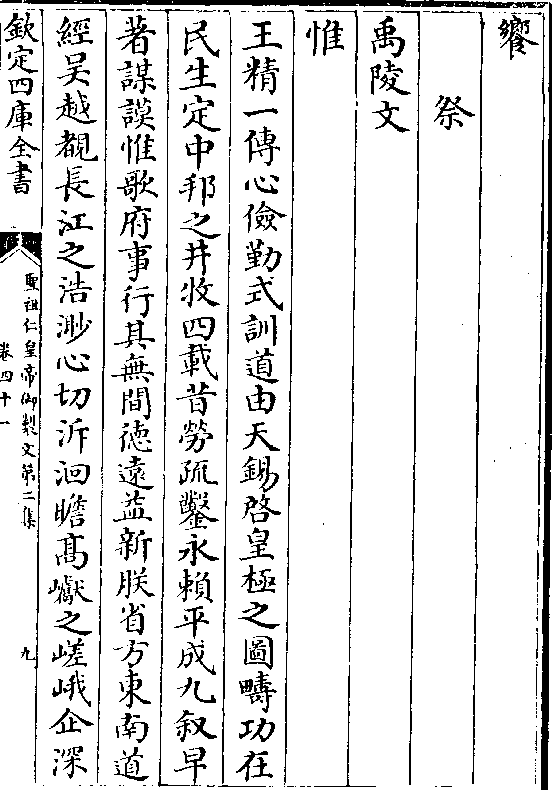 饗
祭
禹陵文
惟
王精一傳心儉勤式訓道由天錫啓皇極之圖疇功在
民生定中邦之井牧四載昔勞疏鑿永賴平成九叙早
著謀謨惟歌府事行其無間徳遠益新朕省方東南道
經吴越覩長江之浩渺心切泝洄瞻髙巘之嵯峨企深
欽定四庫全書
聖祖仁皇帝御製文第二集
卷四十一
九